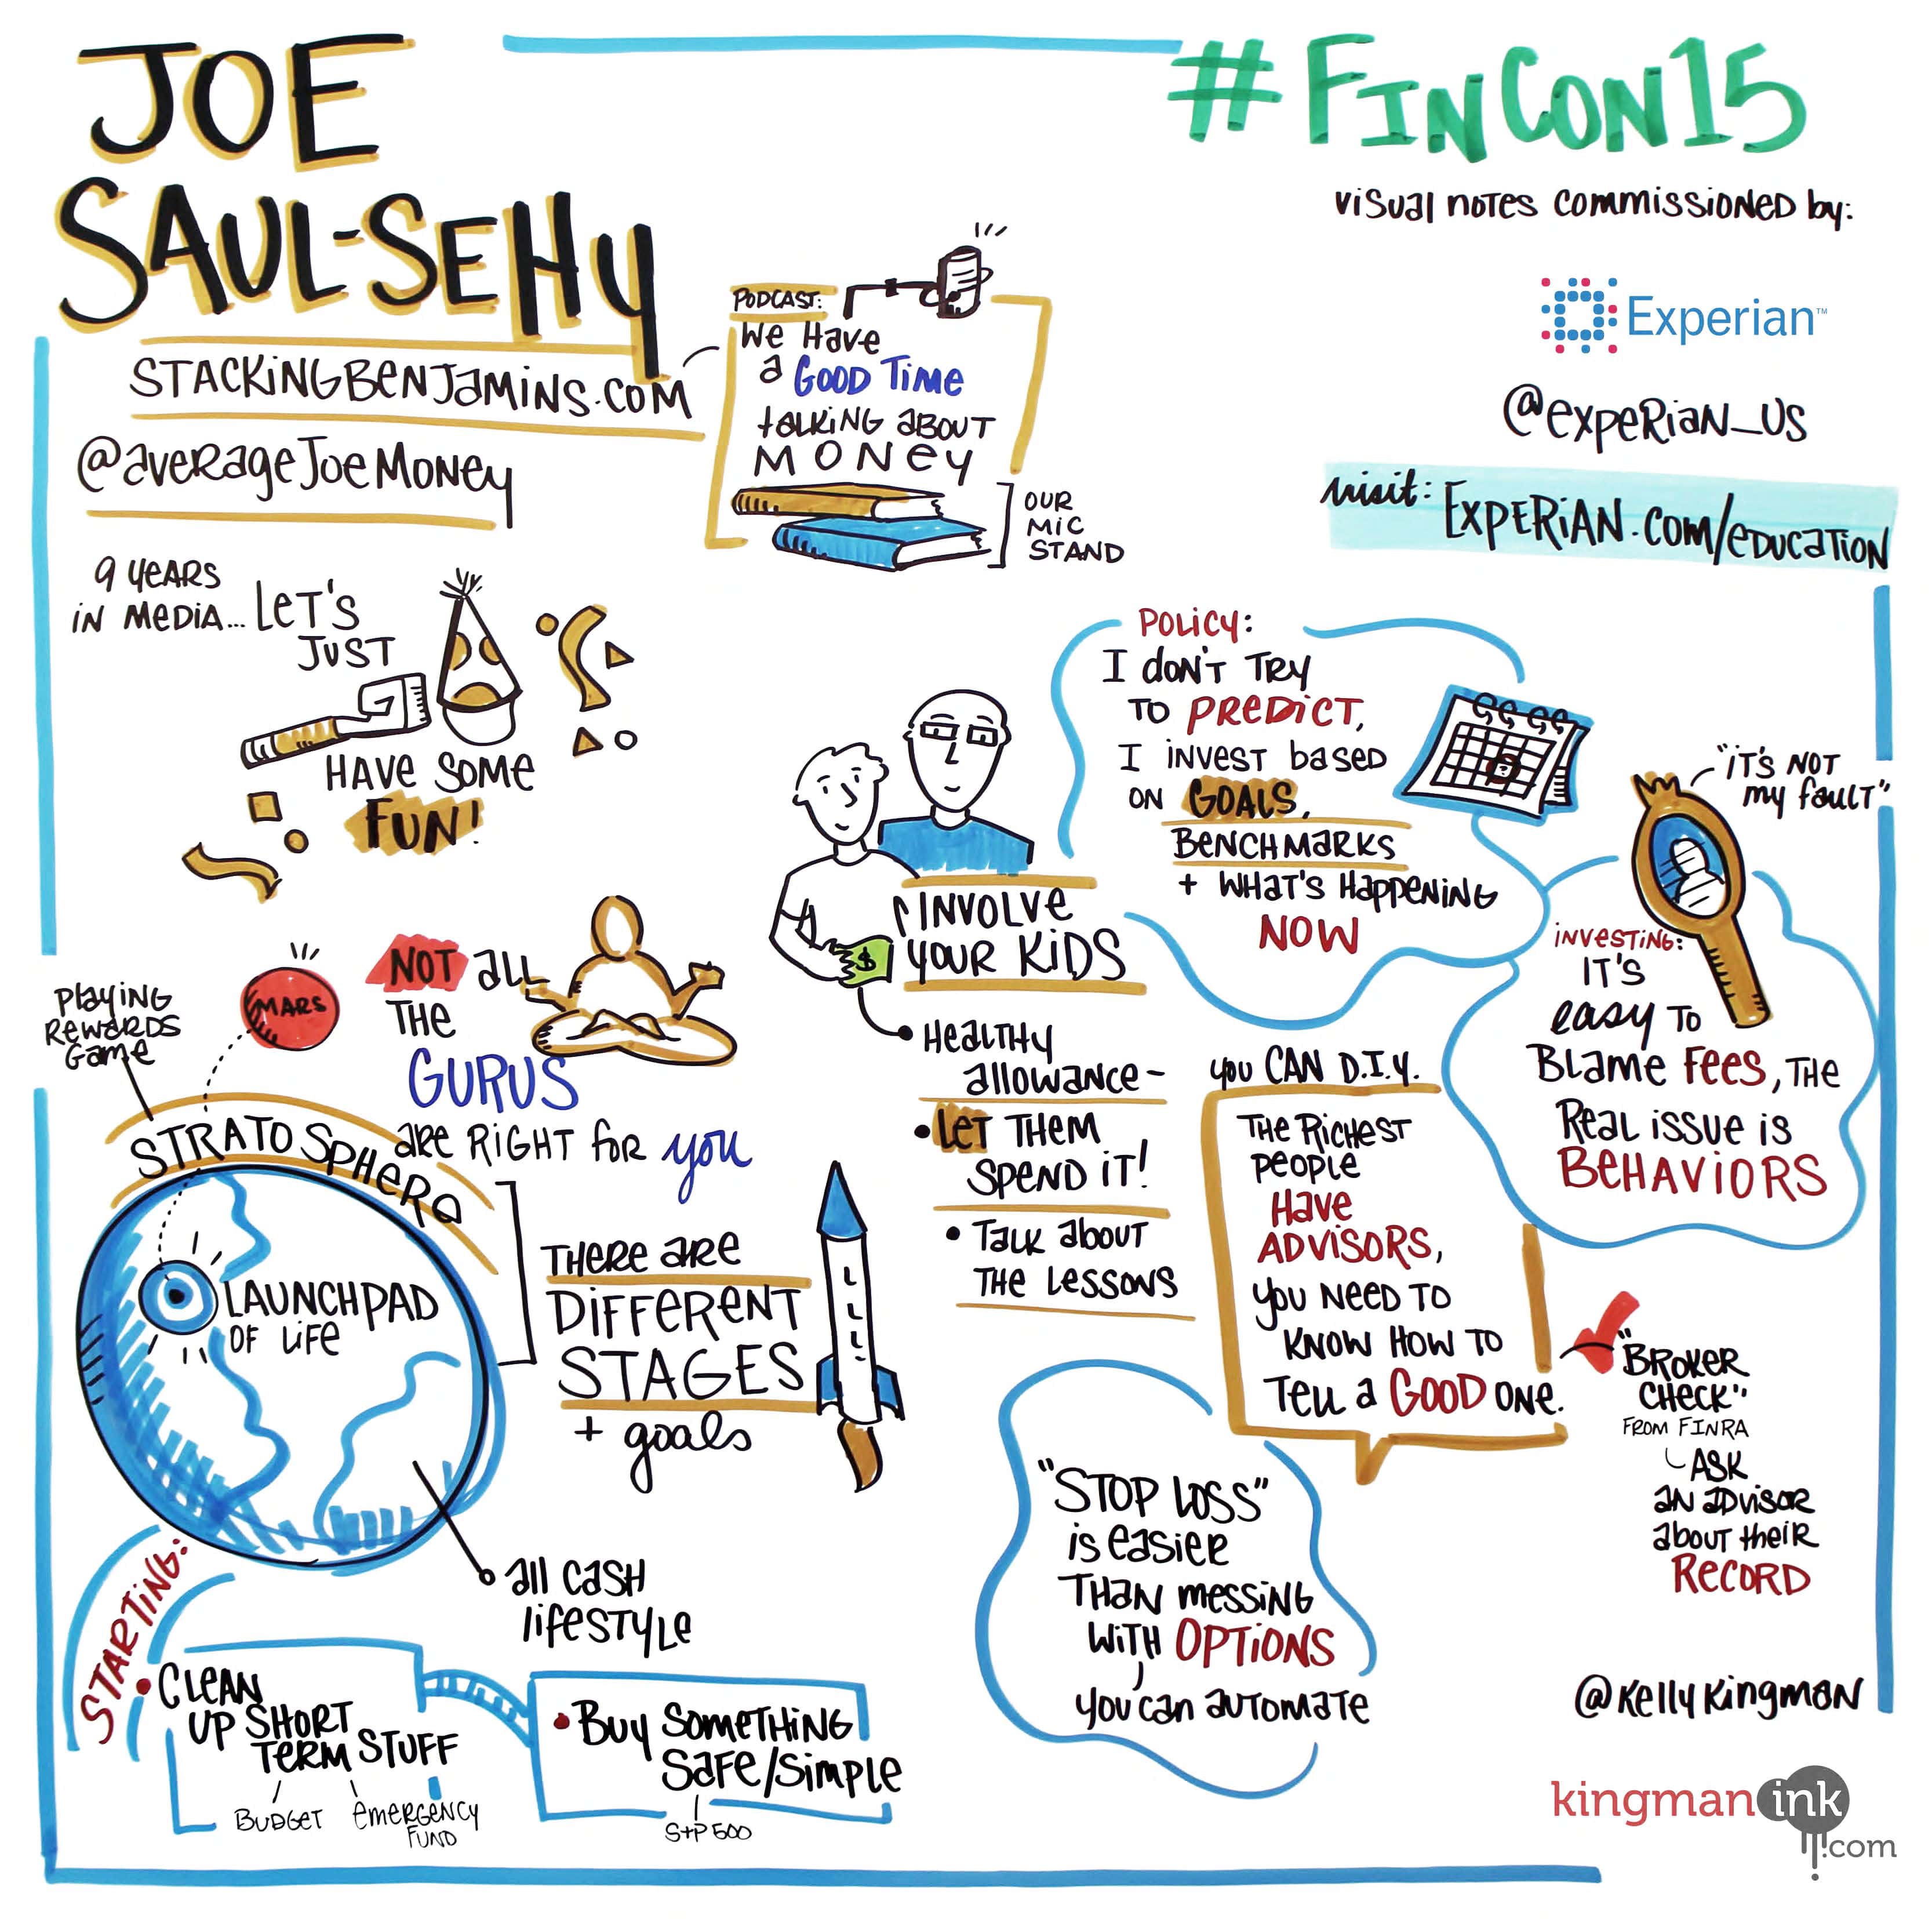 JOE
SAUL-SEHY
STACKINGBENJAMINS.COM
@averageJoeMoney
#FINCON15
visual notes commissioned by:
Experian™
@experian_us
visit: EXPERIAN.com/education
PODCAST:
We Have
a GOOD TIME
talking about
MONEY
OUR
MIC
STAND
9 years
in media... LET'S
JUST
HAVE SOME
FUN!
POLICY:
I don't TRY
TO PREDICT,
I invest based
on GOALS,
BENCHMARKS
+ WHAT'S Happening
NOW
"IT'S NOT
my fault"
INVESTING:
IT'S
easy TO
Blame fees, THE
Real issue is
BEHAVIORS
INVOLVE
YOUR KIDS
• Healthy
allowance-
• LET THEM
SPEND IT!
• Talk about
THE Lessons
NOT all
THE
GURUS
are RIGHT for you
playing
Rewards
Game
MARS
STRATOSPHERE
LAUNCHPAD
OF LIFE
THERE are
DIFFERENT
STAGES
+ goals
all cash
lifestyle
you CAN D.I.Y.
THE RICHEST
people
Have
ADVISORS,
you NEED TO
KNOW HOW TO
Tell a GOOD one.
"BROKER
CHECK":
FROM FINRA
ASK
an advisor
about their
RECORD
"STOP LOSS"
is easier
THAN messing
WITH OPTIONS
you can automate
STARTING:
• CLEAN
UP SHORT
TERM STUFF
BUDGET
emergency
FUND
• Buy something
Safe/Simple
S+P 500
@KellyKingman
kingmanink
.com